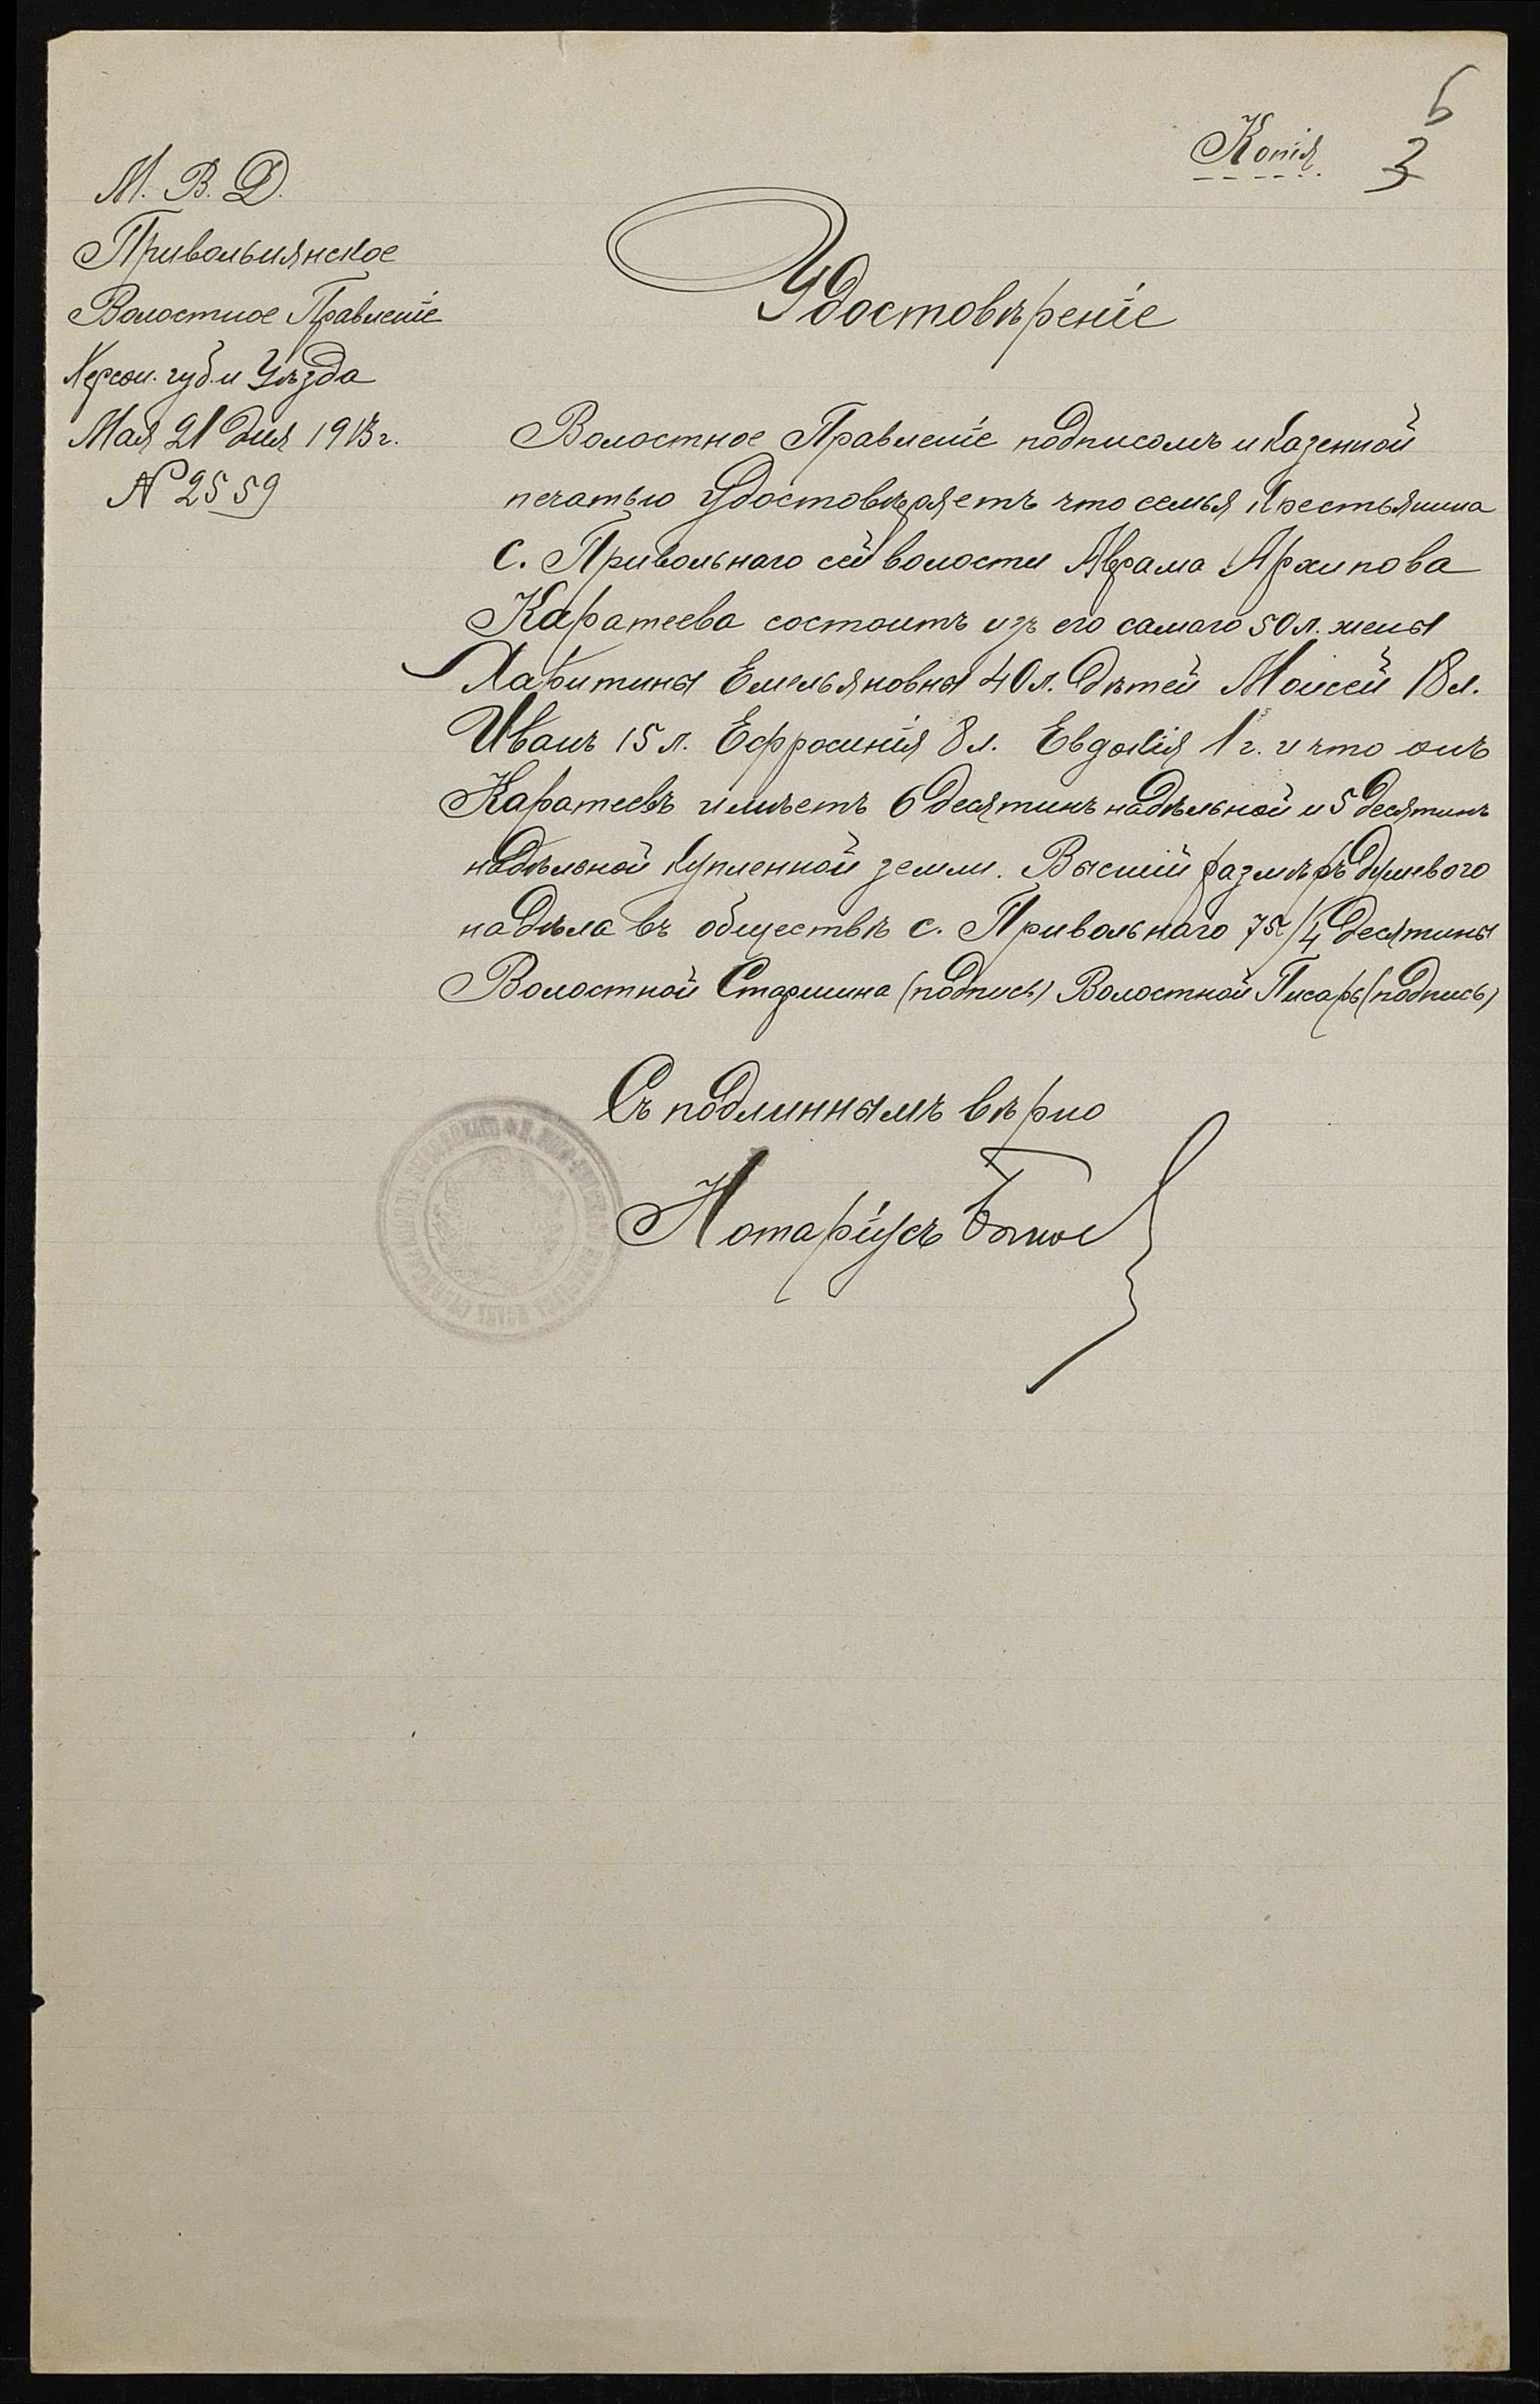 Копія
6
3
М. В. Д.
Привольнянское
Волостное Правленіе
Херсон. губ. и Уѣзда
Мая 21 дня 1913 г.
№ 2559
Удостовѣреніе
Волостное Правленіе подписомъ и казенной
печатью удостовѣряетъ что семья Крестьянина
с. Привольнаго сей волости Аврама Архипова
Каратеева состоитъ изъ его самаго 50 л. жены
Хавитины Емельяновны 40 л. дѣтей Моисей 18 л.
Иванъ 15 л. Ефросинія 8 л. Евдокія 1 г. и что онъ
Каратеевъ имѣетъ 6 десятинъ надѣльной и 5 десятинъ
надѣльной купленной земли. Высшій размѣръ душевого
надѣла въ обществѣ с. Привольнаго десятины
Волостной Старшина (подпись) Волостной Писарь (подпись)
Съ подлиннымъ вѣрно
Нотаріусъ